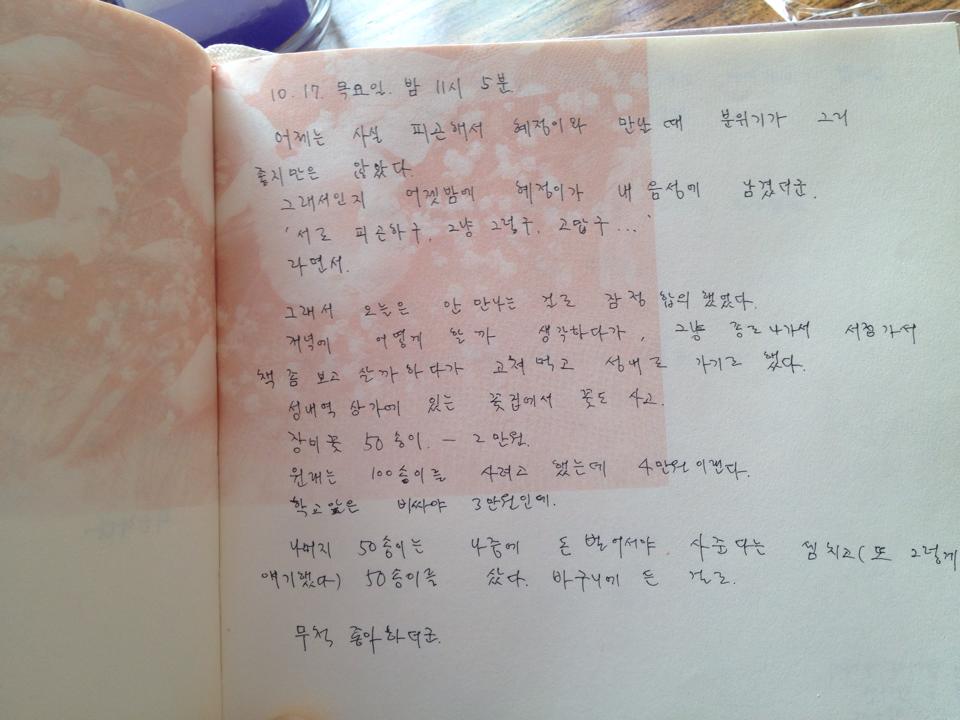 10. 17. 목요일. 밤 11시 5분.
어제는 사실 피곤해서 혜정이와 만났때 분위기가 그리
좋지만은 않았다.
그래서인지 어젯밤에 혜정이가 내 음성에 남겼더군.
'서로 피곤하구, 그냥 그렇구, 고맙구...'
라면서.
그래서 오늘은 안 만나는 걸로 잠정 합의했었다.
저녁에 어떻게 할까 생각하다가, 그냥 종로나가서 서점가서
책 좀 보고 올까하다가 고쳐먹고 성내로 가기로 했다.
성내역 상가에 있는 꽃집에서 꽃도 사고.
장미꽃 50송이. - 2만원.
원래는 100송이를 사려고 했는데 4만원이랜다.
학교앞은 비싸야 3만원인데.
나머지 50송이는 나중에 돈 벌어서야 사준다는 셈치고(또 그렇게
얘기했다) 50송이를 샀다. 바구니에 든 걸로.
무척 좋아하더군.